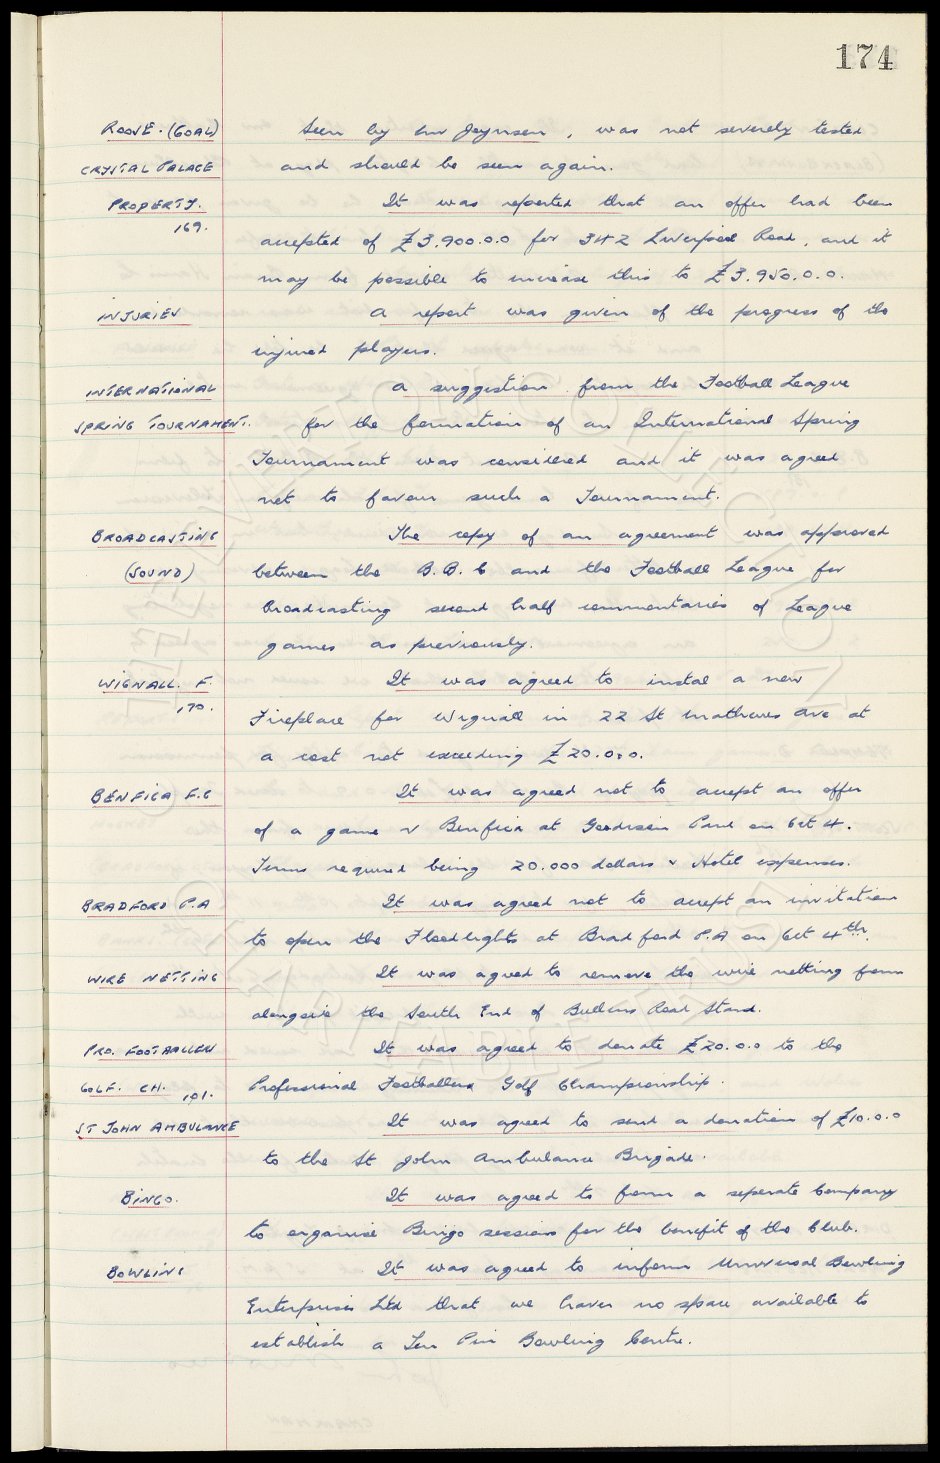 174
ROOVE. (GOAL) Seen by Mr Joynson, was not severely tested
CRYSTAL PALACE and should be seen again.
PROPERTY. It was reported that an offer had been
169. accepted of £3.900.0.0 for 342 Liverpool Road, and it
may be possible to increase this to £3.950.0.0.
INJURIES A report was given of the progress of the
injured players.
INTERNATIONAL A suggestion from the Football League
SPRING TOURNAMENT. for the formation of an International Spring
Tournament was considered and it was agreed
not to favour such a Tournament.
BROADCASTING The copy of an agreement was approved
(SOUND) between the B.B.C and the Football League for
broadcasting second half commentaries of League
games as previously.
WIGNALL. F. It was agreed to instal a new
170. Fireplace for Wignall in 22 St Mathews Ave at
a cost not exceeding £20.0.0.
BENFICA F.C It was agreed not to accept an offer
of a game v Benfica at Goodison Park on Oct 4.
Terms required being 20.000 dollars & Hotel expenses.
BRADFORD P.A It was agreed not to accept an invitation
to open the Floodlights at Bradford P.A on Oct 4th.
WIRE NETTING It was agreed to remove the wire netting from
alongside the South End of Bullens Road Stand.
PRO. FOOTBALLERS It was agreed to donate £20.0.0 to the
GOLF. CH. 101. Professional Footballers Golf Championship.
ST JOHN AMBULANCE It was agreed to send a donation of £10.0.0
to the St John Ambulance Brigade.
BINGO. It was agreed to form a seperate Company
to organise Bingo sessions for the benefit of the Club.
BOWLING It was agreed to inform Universal Bowling
Enterprises Ltd that we haven no space available to
establish a Ten Pin Bowling Centre.